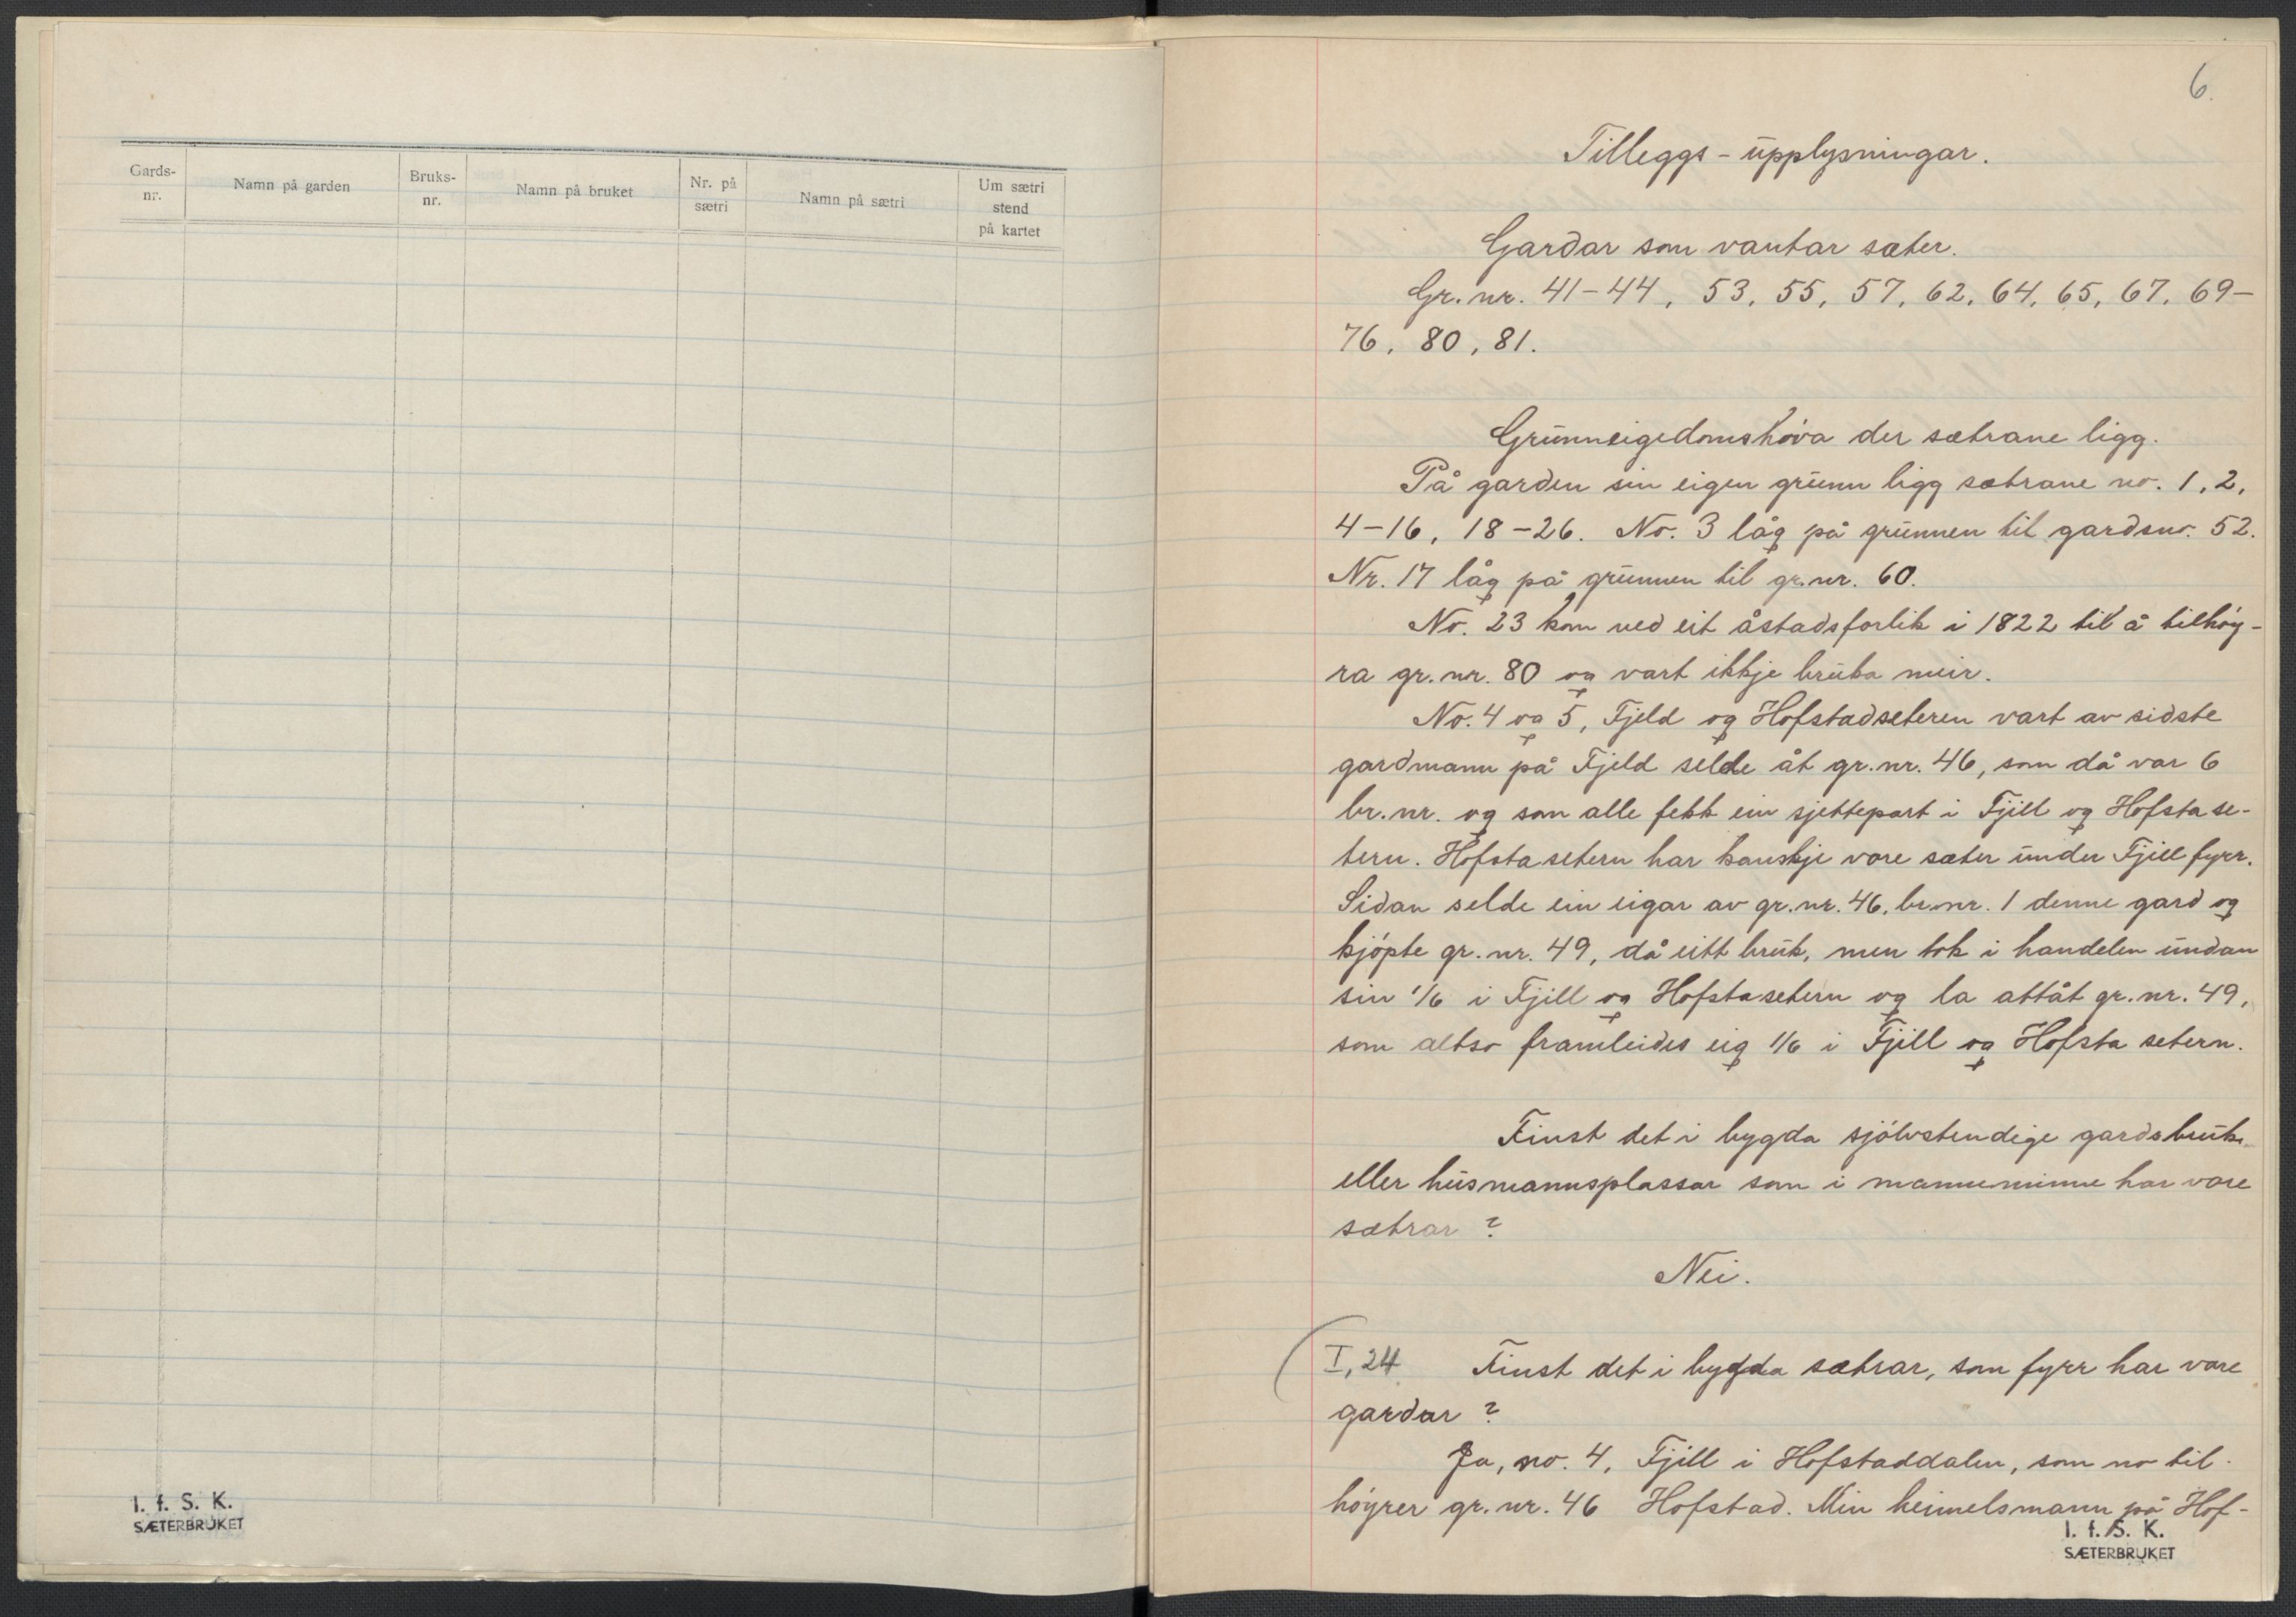 Gards-
nr.
Namn på garden
Bruks-
nr.
Namn på bruket
Nr. på
sætri
Namn på sætri
Um sætri
stend
på kartet
I. f. S. K.
SÆTERBRUKET
6.
Tilleggs-upplysningar.
Gardar som vantar sæter.
Gr. nr. 41-44, 53, 55, 57, 62, 64, 65, 67, 69-
76, 80, 81.
Grunneigedomshøva der sætrane ligg.
På garden sin eigen grunn ligg sætrane no. 1, 2,
4-16, 18-26. No. 3 låg på grunnen til gardsno. 52.
Nr. 17 låg på grunnen til gr. nr. 60.
No. 23 kom ved eit åstadsforlik i 1822 til å tilhøy-
ra gr. nr. 80 og vart ikkje bruka meir.
No. 4 og 5, Fjeld og Hofstadseteren vart av sidste
gardmann på Fjeld selde åt gr. nr. 46, som då var 6
br. nr. og som alle fekk ein sjettepart i Fjill og Hofstase-
tern. Hofstasetern har kanskje vore sæter under Fjill fyrr.
Sidan selde ein eigar av gr. nr. 46, br. nr. 1 denne gard og
kjøpte gr. nr. 49, då eitt bruk, men tok i handelen undan
sin 1/6 i Fjill og Hofstasetern og la attåt gr. nr. 49,
som altso framleides eig 1/6 i Fjill og Hofsta setern.
Finst det i bygda sjølvstendige gardsbruk
eller husmannsplassar som i manneminne har vore
sætrar?
Nei.
I, 24 Finst det i bygda sætrar, som fyrr har vore
gardar?
Ja, no. 4, Fjill i Hofstaddalen, som no til-
høyrer gr. nr. 46 Hofstad. Min heimelsmann på Hof-
I. f. S. K.
SÆTERBRUKET